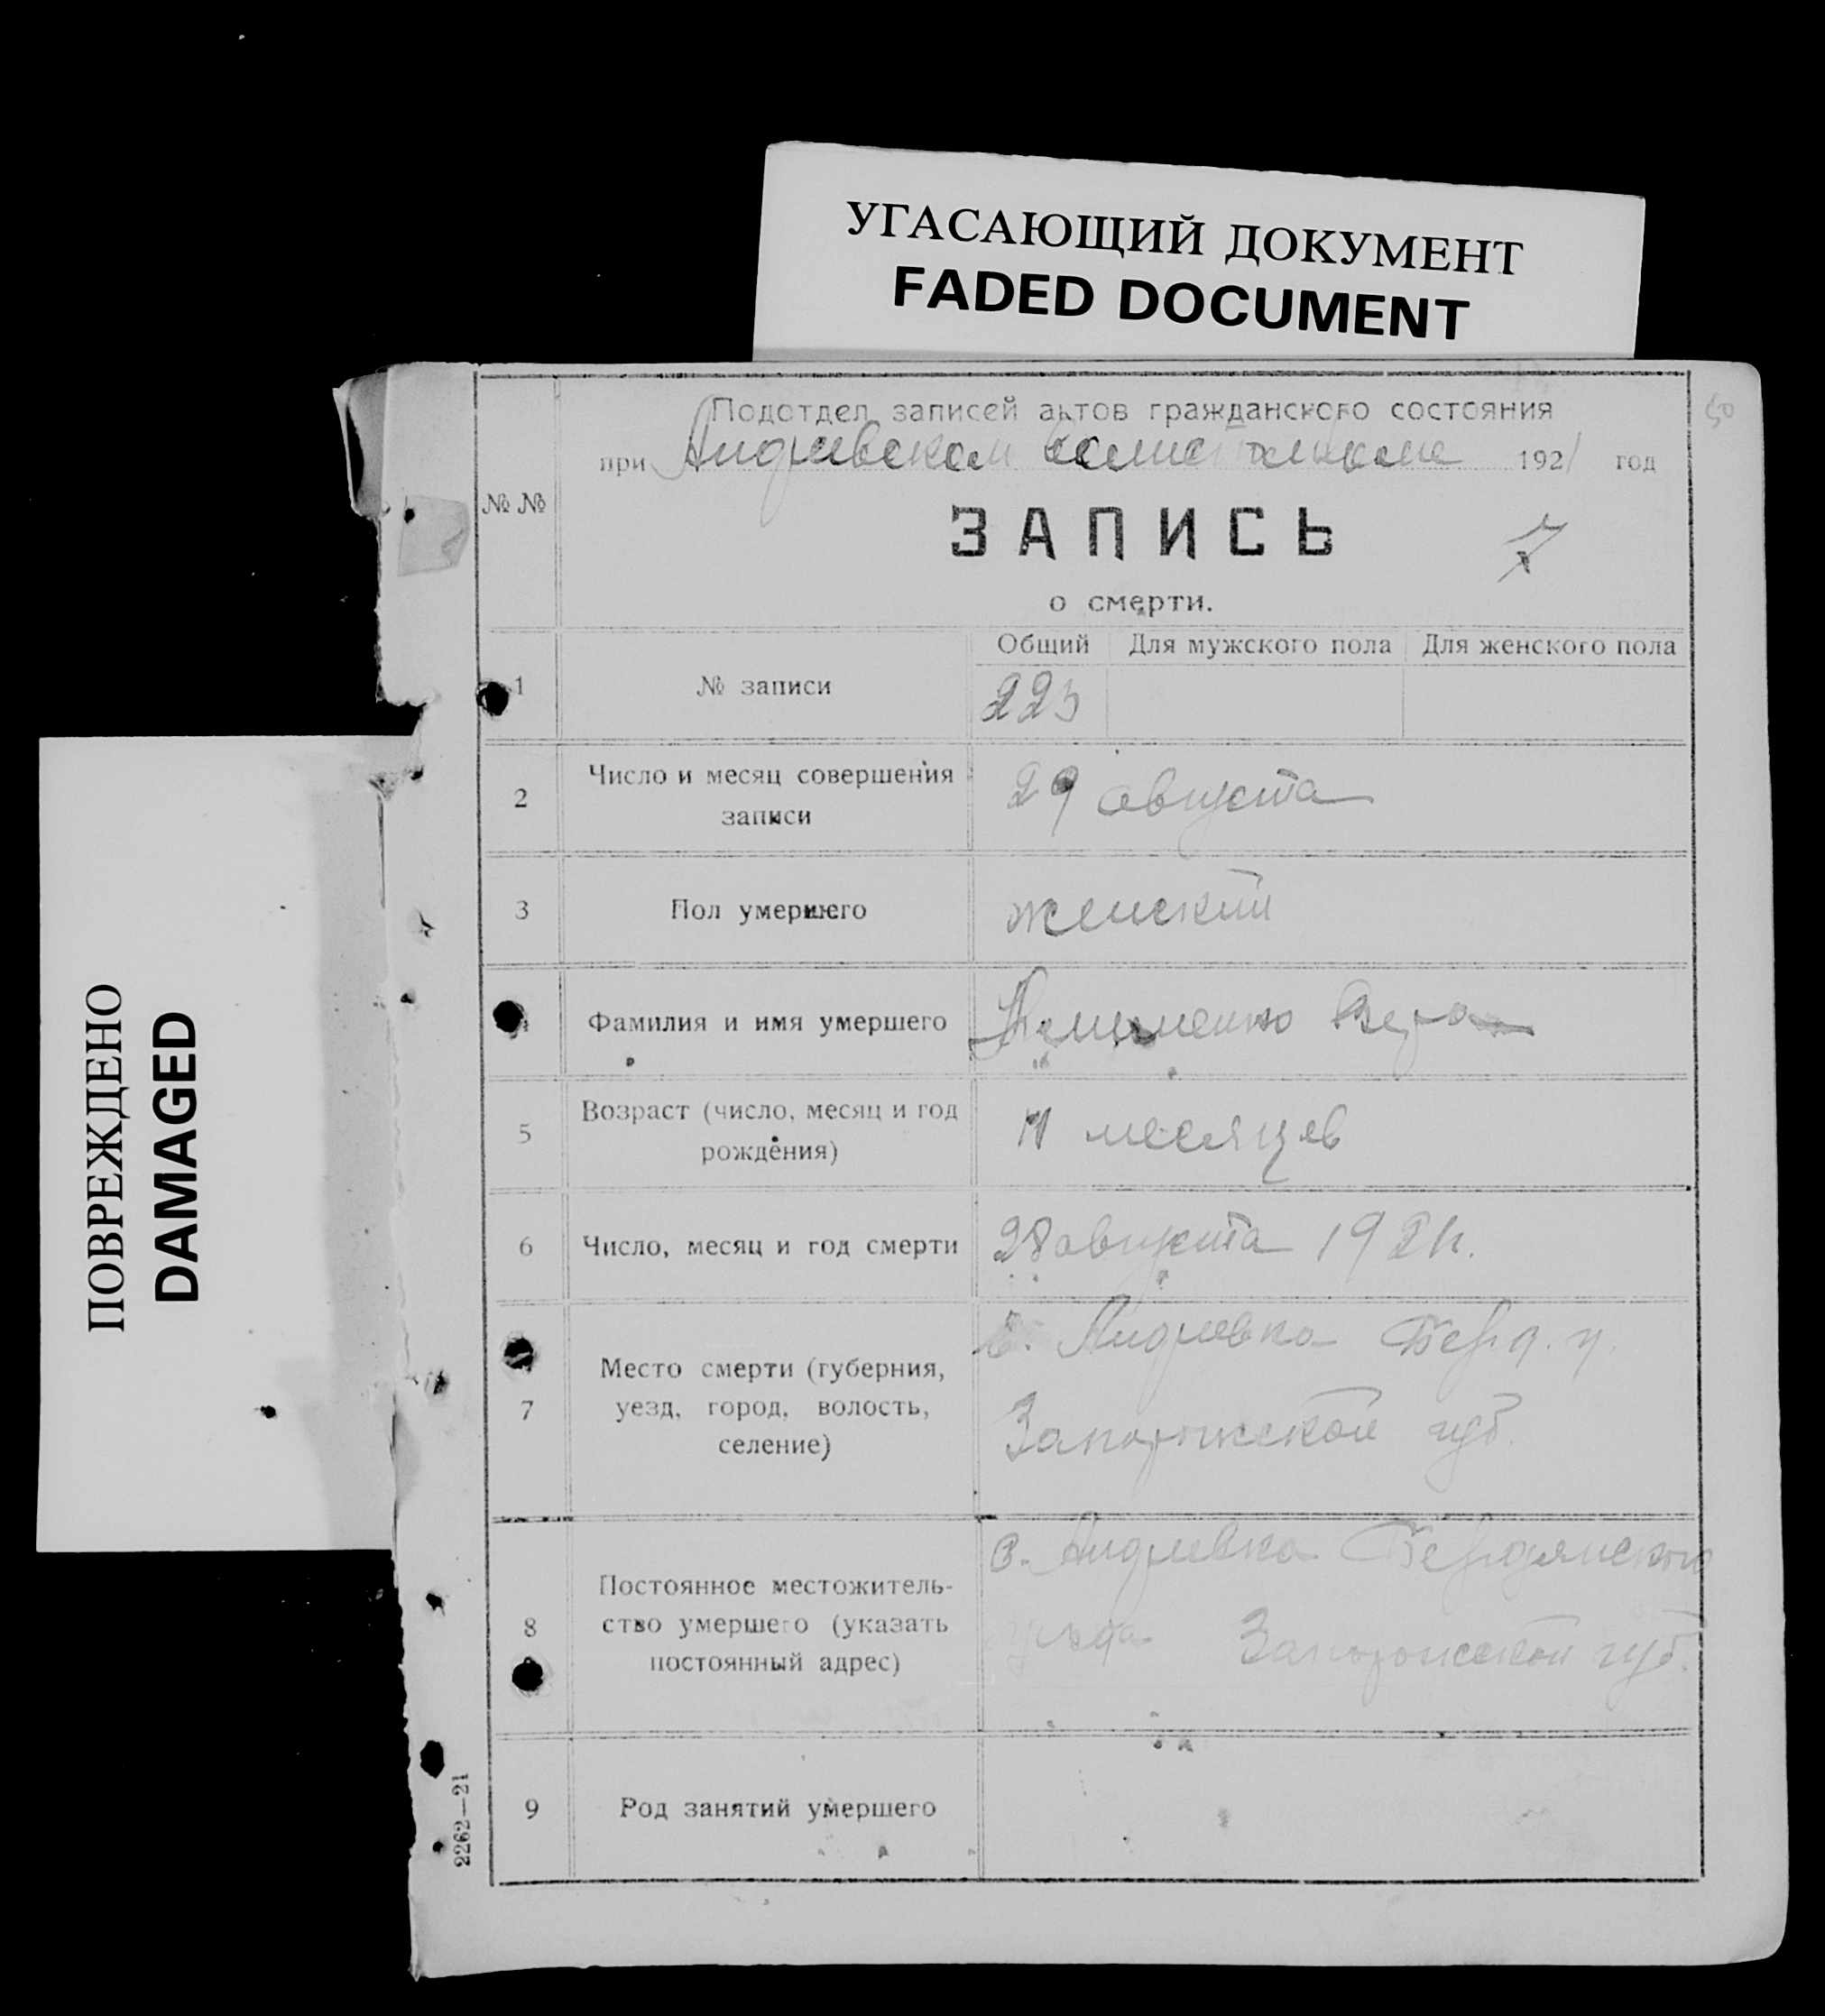 УГАСАЮЩИЙ ДОКУМЕНТ
FADED DOCUMENT
ПОВРЕЖДЕНО
DAMAGED
50
Подотдел записей актов гражданского состояния
при Андреевском 1921 год
№ №
ЗАПИСЬ
о смерти.
Общий Для мужского пола Для женского пола
1 № записи 223
2 Число и месяц совершения
записи
29 августа
3 Пол умершего женский
Фамилия и имя умершего Вера
5 Возраст (число, месяц и год
рождения)
месяцев
6 Число, месяц и год смерти 28 августа 1921 г.
7 Место смерти (губерния,
уезд, город, волость,
селение)
с. Андреевка Берд. у.
Запорожской губ.
8 Постоянное местожитель-
ство умершего (указать
постоянный адрес)
с. Андреевка Бердянского
уезда Запорожской губ.
9 Род занятий умершего
2262—21